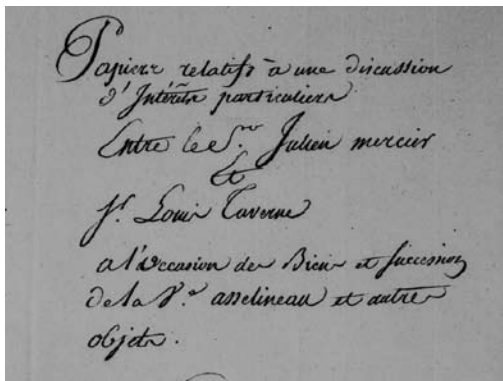 Papiers relatifs a une discussion
d'Intérêts particuliers
Entre les Srs Julien mercier
Et
Sr. Louis Taverne
a l'occasion des Biens et succession
de la Ve. asselineau et autres
objets.